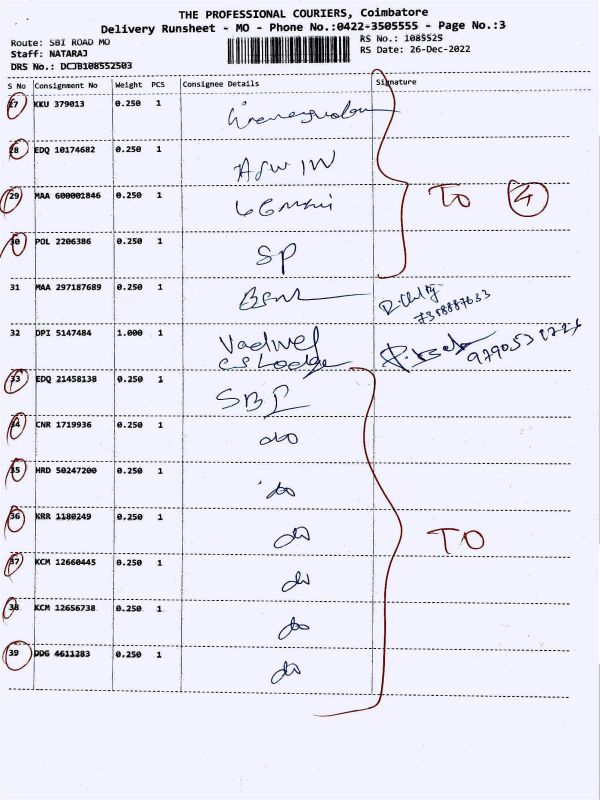 THE PROFESSIONAL COURIERS, Coimbatore
Delivery Runsheet - MO - Phone No.:0422-3505555 - Page No.:3
Route: SBI ROAD MO
RS No.: 1085525
Staff: NATARAJ
RS Date: 26-Dec-2022
DRS No.: DCJB108552503
S No Consignment No Weight PCS Consignee Details Signature
27 KKU 379013 0.250 1
28 EDQ 10174682 0.250 1 ASWIN
29 MAA 600001846 0.250 1 TO 4
30 POL 2206386 0.250 1 SP
31 MAA 297187689 0.250 1 BSNL
7358887633
32 DPI 5147484 1.000 1 Vadivel
CS Lodge
33 EDQ 21458138 0.250 1 SBI
34 CNR 1719936 0.250 1 do
35 HRD 50247200 0.250 1 do
36 KRR 1180249 0.250 1 do TO
37 KCM 12660445 0.250 1 do
38 KCM 12656738 0.250 1 do
39 DDG 4611283 0.250 1 do